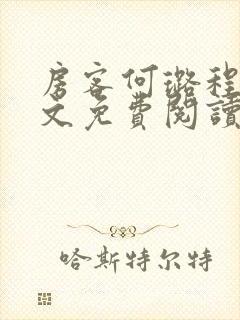 房客何璐程
文免費閱讀
哈斯特尔特